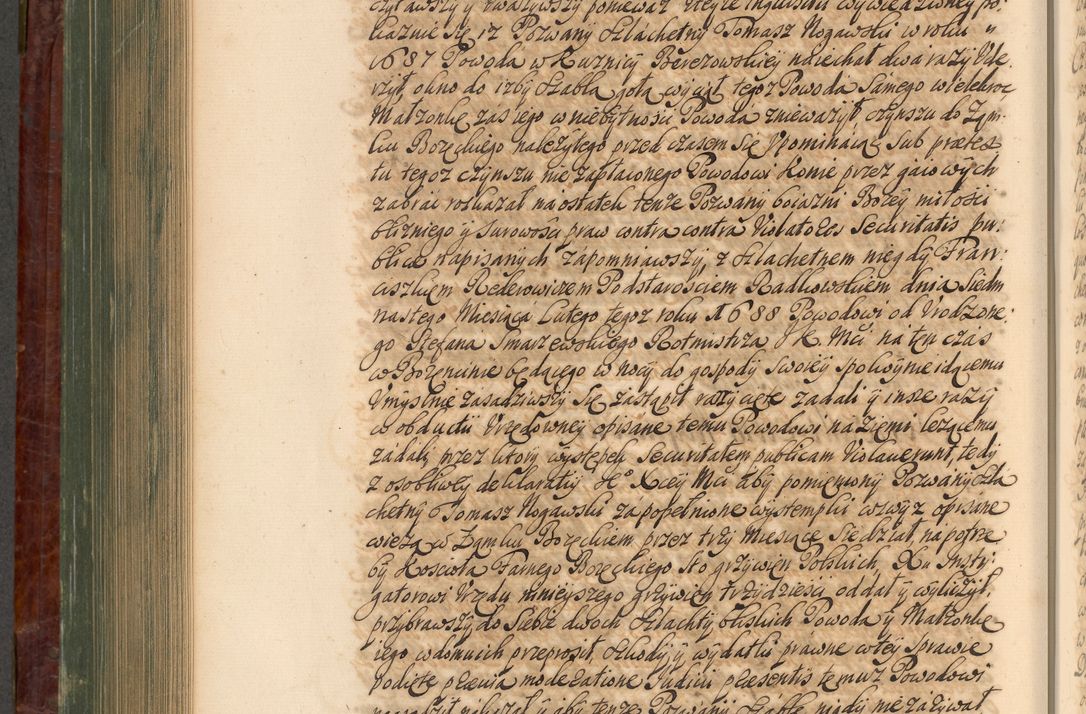 czytawszy y uważywszy ponieważ że y ze Inquisitii wywiedzioney po
kazuie się iż Pozwany Szlachetny Tomasz Nogawski w roku "
1687 Powoda w Kuznicy Berezowskiey naiechał dwa razy Ude
rzył, okno do izby szablą gołą wyciął tegoż Powoda samego wielekroc
Małżonkę zaś iego w niebytności Powoda znieważył czynszu do Zam
ku Bozęckiego należytego przed czasem się Upominaiąc, sub prætex
tu tegoż czynszu nie zapłaconego Powodowi Konie przez gaiowych
zabrać roskazał naostatek tenże Pozwany boiazni Bożey miłości
bliźniego y surowości praw contra contra Violatores Securitatis pu
blicæ napisanych zapomniawszy, z Szlachetnem niegdy Fran
ciszkiem Rederowiczem Podstarościem Radkowskiem dnia siedm
nastego Miesiąca Lutego tegoż roku 1688 Powodowi od Urodzone
go Stefana Smarzewskiego Rotmistrza J K Mci na ten czas
w Bozęcinie będącego w nocy do gospody swoiey spokoynie idącemu
Umyślnie zasadziwszy się zastąpił raz y cięte zadali y insze razy
w obductii Urzędowney opisane temu Powodowi na Ziemi leżącemu
zadali, przez ktory występek Securitatem publicam Violaverunt, tedy
z osobliwey deklaratiy Jº Xcey Mci aby pomieniony Pozwany Szla
chetny Tomasz Nogawski za popełnione wystempki wzwyż opisane
wieżą w Zamku Bozęckiem przez trzy Miesiące siedział, na potrze
by Koscioła Farnego Bozęckiego sto grzywien Polskich, Xu Insty
gatorowi Urzędu ninieyszego grzywien trzydzieści oddał y wyliczył,
przybrawszy do siebie dwoch Szlachty bliskich Powoda y Małżonkę
iego w domuich przeprosił, szkody y wydatki prawne w tey sprawie
podięte præuia moderatione Iudicii præsentis temuż Powodowi
nagrodził y aby tenże Pozwany szable nigdy nie zażywał